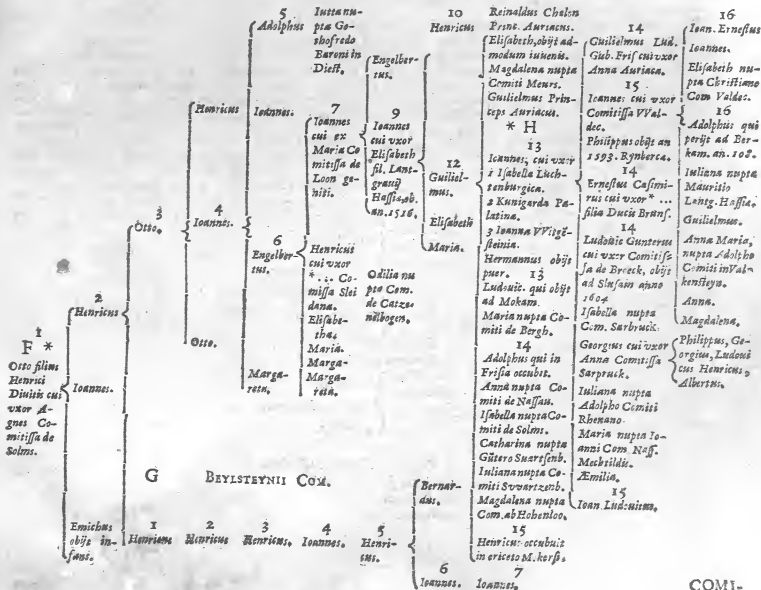 1
F *
Otto filius
Henrici
Divitis cui
vxor A-
gnes Co-
mitissa de
Solms.
2
Henricus
Ioannes.
Emichus
obijt in-
fans.
3
Otto.
Henricus
4
Ioannes.
Otto.
5
Adolphus
Ioannes.
6
Engelber-
tus.
Marga-
reta.
Iutta nu-
pta Go-
thofredo
Baroni in
Diest.
7
Ioannes
cui ex
Maria Co-
mitissa de
Loon ge-
niti.
Henricus
cui vxor
*... Co-
missa Slei
dana.
Elisabe-
tha.
Maria.
Marga-
Marga-
reta.
Engelber-
tus.
9
Ioannes
cui vxor
Elisabeth
fil. Lant-
gravij
Hassiæ, ob.
an. 1516.
Odilia nu
pta Com.
de Catze
nelbogen.
10
Henricus
12
Guiliel-
mus.
Elisabeth
Maria.
Reinaldus Chalon
Princ. Auriacus.
Elisabeth, obijt ad-
modum iuuenis.
Magdalena nupta
Comiti Meurs.
Guilielmus Prin-
ceps Auriacus.
* H
13
Ioannes, cui vxor
1 Isabella Luch-
tenburgica.
2 Kunigarda Pa-
latina.
3 Ioanna VVitgē-
steinia.
Hermannus obijt
puer. 13
Ludouic. qui obijt
ad Mokam.
Maria nupta Co-
miti de Bergh.
14
Adolphus qui in
Frisia occubit.
Anna nupta Co-
miti de Nassau.
Isabella nupta Co-
miti de Solms.
Catharina nupta
Gūtero Suartsenb.
Iuliana nupta Co-
miti Svvartzenb.
Magdalena nupta
Com. ab Hohenloo.
15
Henricus occubuit
in ericeto M. kersi.
14
Guilielmus Lud.
Gub. Fris cui vxor
Anna Auriaca.
15
Ioannes cui vxor
Comitissa VVal-
dec.
Philippus obijt an
1593. Rynberca.
14
Ernestus Casimi-
rus cui vxor * ...
filia Ducis Bruns.
14
Ludouic Gunterus
cui vxor Comitis-
sa de Broeck, obijt
ad Slusam anno
1604
Isabella nupta
Com. Sarbruck.
Georgius cui vxor
Anna Comitissa
Sarpruck.
Iuliana nupta
Adolpho Comiti
Rhenano.
Maria nupta Io-
anni Com. Nass.
Mechtildis.
Æmilia.
15
Ioan. Ludouicus.
16
Ioan. Ernestus
Ioannes.
Elisabeth nu-
pta Christiano
Com Valdec.
16
Adolphus qui
perijt ad Ber-
kam. an. 108.
Iuliana nupta
Mauritio
Lantg. Hassia.
Guilielmus.
Anna Maria,
nupta Adolpho
Comiti in Val-
kensteyn.
Anna.
Magdalena.
Philippus, Ge-
orgius, Ludoui
cus Henricus,
Albertus.
G BEYLSTEYNII COM.
1
Henricus
2
Henricus
3
Henricus.
4
Ioannes.
5
Henri-
cus.
Bernar-
dus.
6
Ioannes.
7
Ioannes.
COMI-